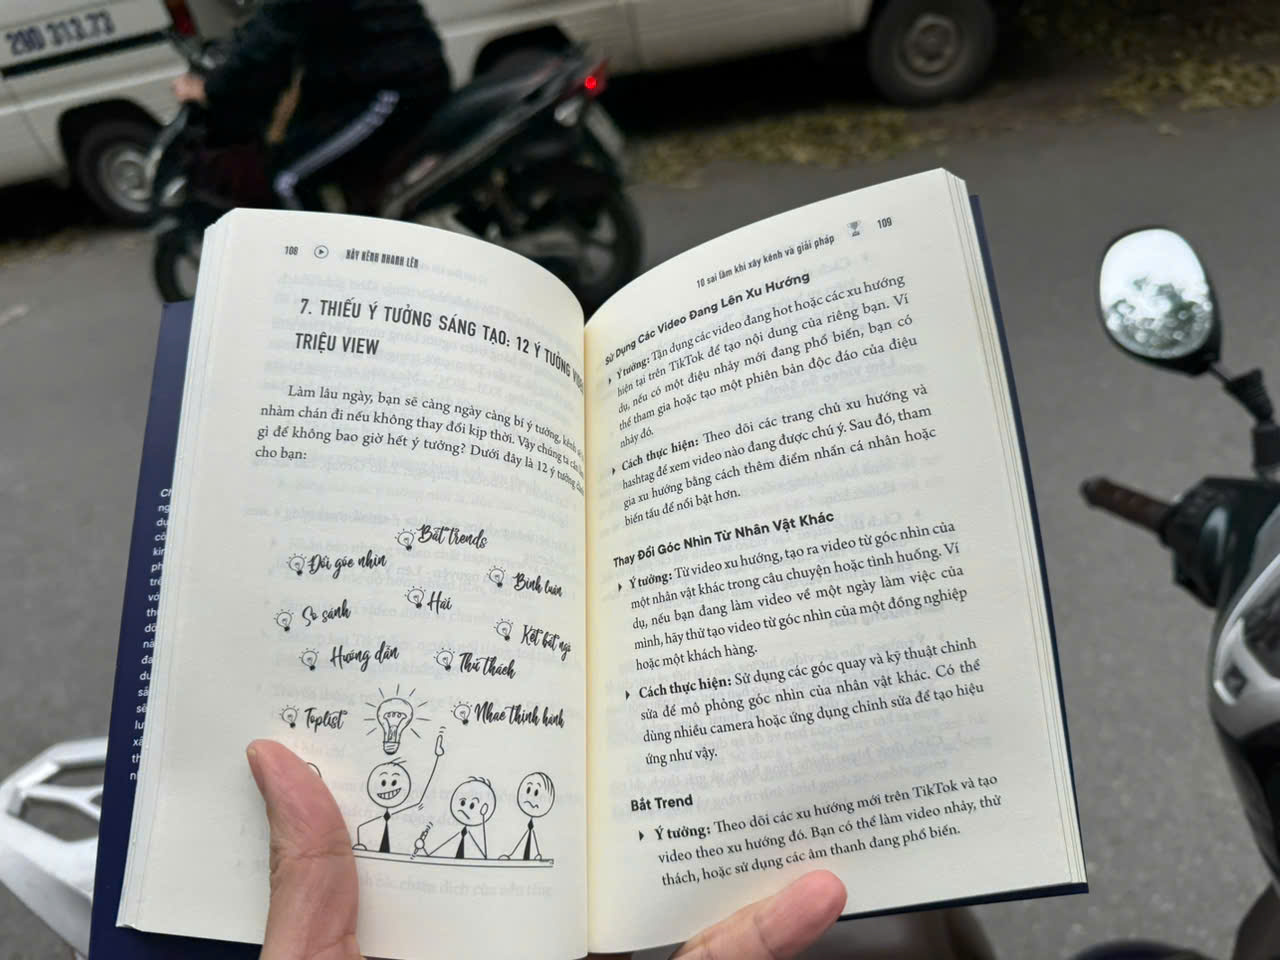 29D 313.73
108
NÂY KÊNH NHANH LÊN
7. THIẾU Ý TƯỞNG SÁNG TẠO: 12 Ý TƯỞNG
TRIỆU VIEW
Làm lâu ngày, bạn sẽ càng ngày càng bí ý tưởng, kênh sẽ
nhàm chán đi nếu không thay đổi kịp thời. Vậy chúng ta cần
gì để không bao giờ hết ý tưởng? Dưới đây là 12 ý tưởng
cho bạn:
Bắt trends
Đổi góc nhìn
Bình luận
Hài
So sánh
Kết bất ngờ
Hướng dẫn
Thử thách
Toplist
Nhạc thịnh hành
10 sai lầm khi xây kênh và giải pháp
109
Sử Dụng Các Video Đang Lên Xu Hướng
Ý tưởng: Tận dụng các video đang hot hoặc các xu hướng
hiện tại trên TikTok để tạo nội dung của riêng bạn. Ví
dụ, nếu có một điệu nhảy mới đang phổ biến, bạn có
thể tham gia hoặc tạo một phiên bản độc đáo của điệu
nhảy đó.
Cách thực hiện: Theo dõi các trang chủ xu hướng và
hashtag để xem video nào đang được chú ý. Sau đó, tham
gia xu hướng bằng cách thêm điểm nhấn cá nhân hoặc
biến tấu để nổi bật hơn.
Thay Đổi Góc Nhìn Từ Nhân Vật Khác
Ý tưởng: Từ video xu hướng, tạo ra video từ góc nhìn của
một nhân vật khác trong câu chuyện hoặc tình huống. Ví
dụ, nếu bạn đang làm video về một ngày làm việc của
mình, hãy thử tạo video từ góc nhìn của một đồng nghiệp
hoặc một khách hàng.
Cách thực hiện: Sử dụng các góc quay và kỹ thuật chỉnh
sửa để mô phỏng góc nhìn của nhân vật khác. Có thể
dùng nhiều camera hoặc ứng dụng chỉnh sửa để tạo hiệu
ứng như vậy.
Bắt Trend
Ý tưởng: Theo dõi các xu hướng mới trên TikTok và tạo
video theo xu hướng đó. Bạn có thể làm video nhảy, thử
thách, hoặc sử dụng các âm thanh đang phổ biến.